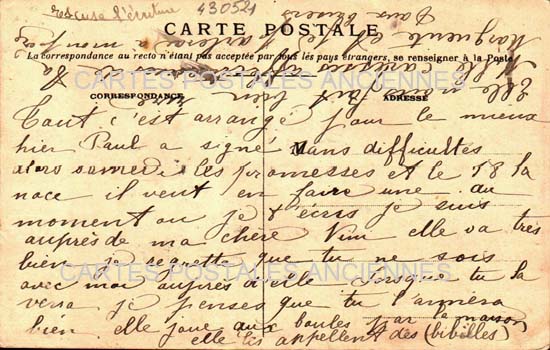 excuse l'écriture
430521
CARTE POSTALE
La correspondance au recto n'étant pas acceptée par tous les pays étrangers, se renseigner à la Poste
CARTES POSTALES ANCIENNES
CORRESPONDANCE
ADRESSE
Tout c'est arrangé pour le mieux
hier Paul a signé sans difficultes
alors samedi les promesses et le 18 la
noce il veut en faire une. au
moment ou je t'écris je suis
auprès de ma chère Nini elle va très
bien je regrette que tu ne sois
CARTES POSTALES ANCIENNES
avec moi auprès d'elle lorsque tu la
verra je penses que tu l'aimera
bien. elle joue aux boules par la maison
elle les appellent des (bibilles)
Elle nous fait bien
Marguerite
mon frère
Sans Envers